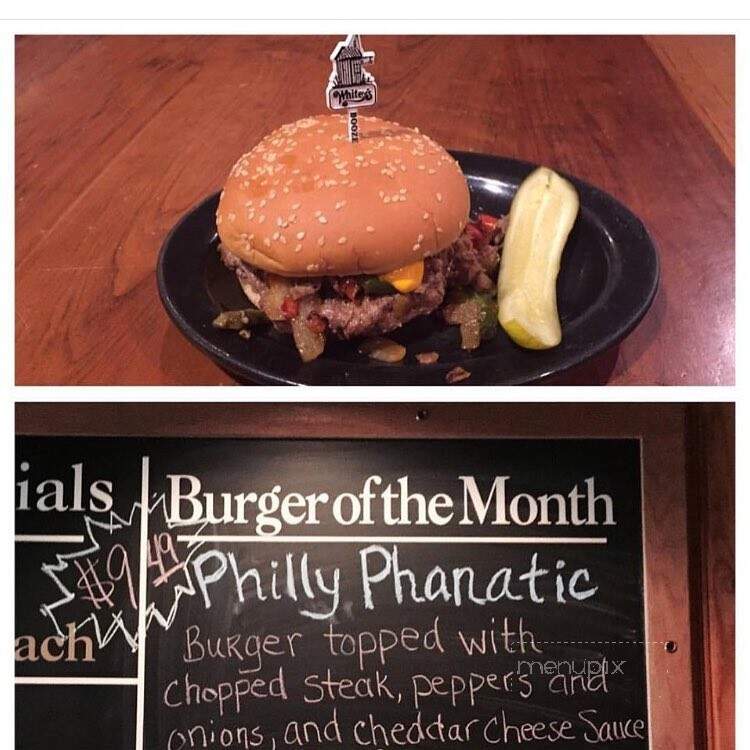 White's
BOOZE
ials
Burger of the Month
$9.49
Philly Phanatic
ach
Burger topped with
chopped steak, peppers and
onions, and cheddar cheese sauce
menupix